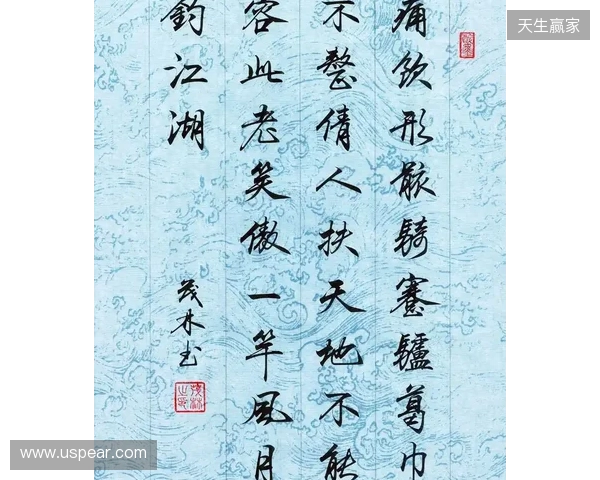 天生赢家
痛飲形骸騎蹇驢葛巾
不整倩人扶天地不能
容此老笑傲一竿風月
釣江湖
茂林书
www.uspear.com